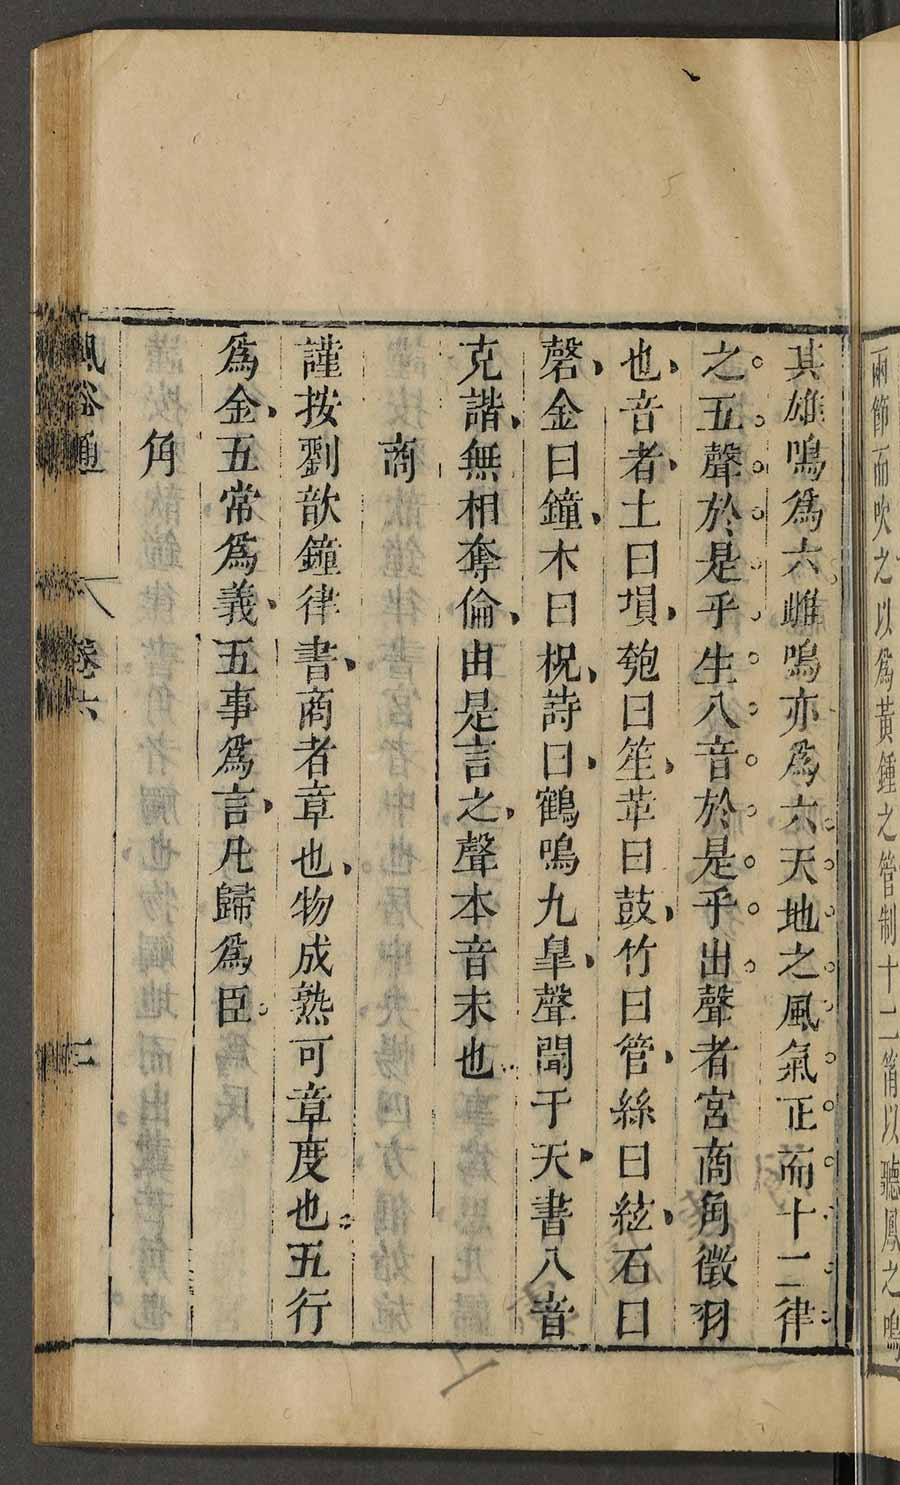 兩節而吹之以爲黃鍾之管制十二筩以聽鳳之鳴
其雄鳴爲六雌鳴亦爲六天地之風氣正而十二律
之五聲於是乎生八音於是乎出聲者宮商角徵羽
也音者土曰塤匏曰笙革曰鼓竹曰管絲曰絃石曰
磬金曰鐘木曰柷詩曰鶴鳴九臯聲聞于天書八音
克諧無相奪倫由是言之聲本音末也
商
謹按劉歆鐘律書商者章也物成熟可章度也五行
爲金五常爲義五事爲言凡歸爲臣
角
風俗通
卷六
二